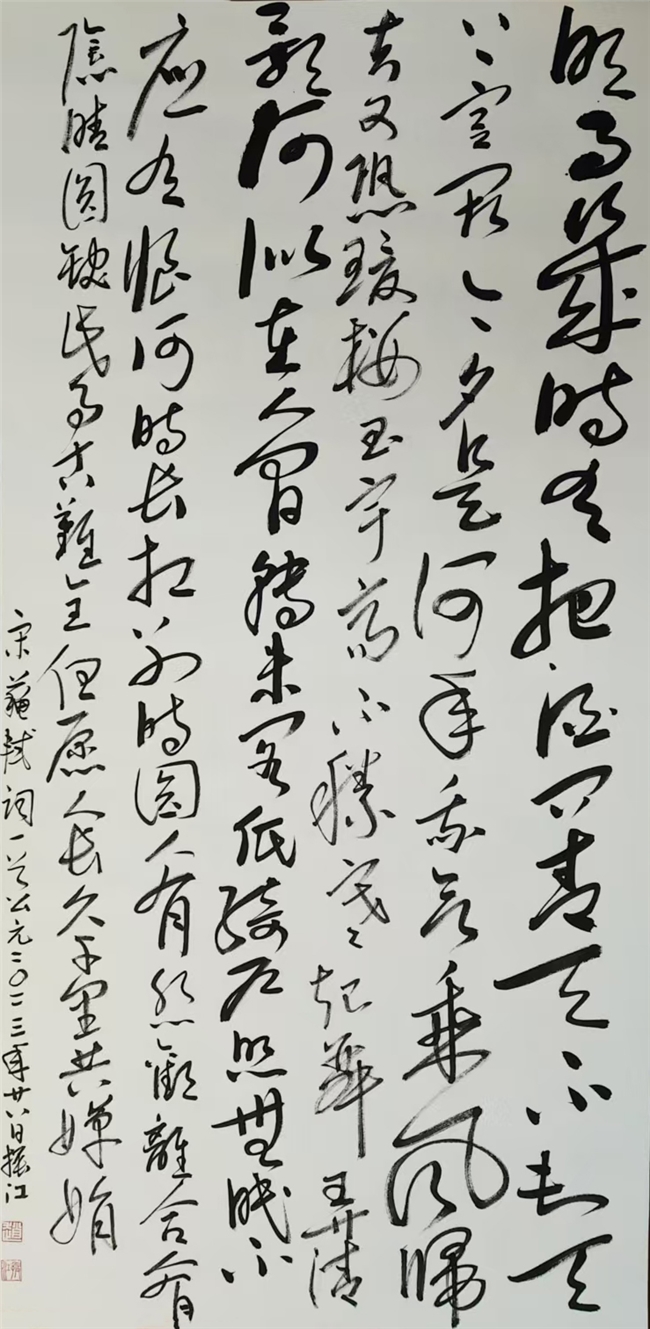 明月幾時有把酒问青天不知天
上宫阙今夕是何年我欲乘風歸
去又恐瓊樓玉宇高不勝寒起舞弄清
影何似在人间轉朱阁低綺户照無眠不
應有恨何時长别時圆人有悲歡離合月有
陰晴圆缺此事古難全但愿人长久千里共嬋娟
宋蘇軾詞一首公元二〇二三年廿八日振江